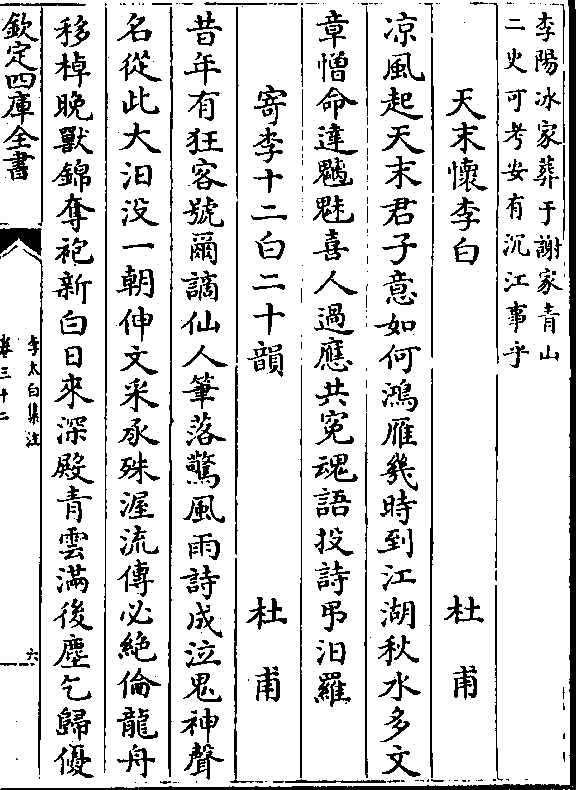 李陽冰家葬于謝家青山
二史可考安有沉江事乎
天末懷李白 杜甫
凉風起天末君子意如何鴻雁幾時到江湖秋水多文
章憎命達魑魅喜人過應共冤魂語投詩弔汨羅
寄李十二白二十韻 杜甫
昔年有狂客號爾謫仙人筆落驚風雨詩成泣鬼神聲
名從此大汨没一朝伸文采承殊渥流傳必絶倫龍舟
移棹晚獸錦奪袍新白日來深殿青雲滿後塵乞歸優
欽定四庫全書
李太白集注
卷三十二
六